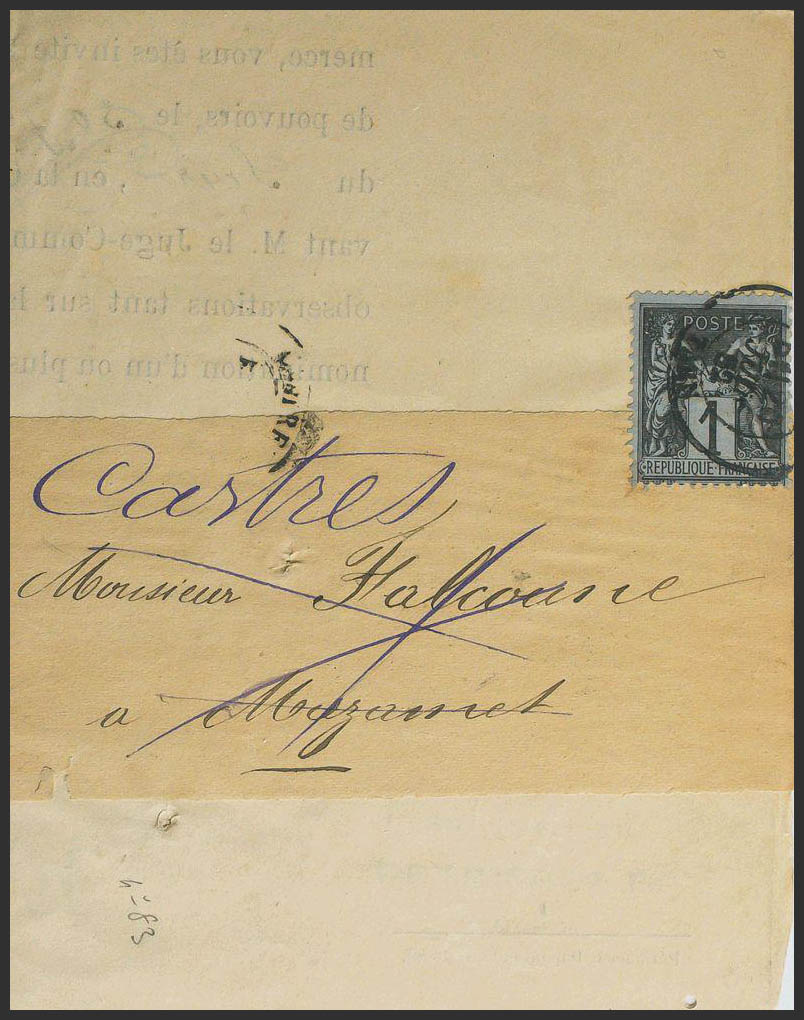 merce, vous êtes invité
de pouvoirs, le
du , en la
vant M. le Juge-Comm
observations tant sur l
nomination d'un ou plus
POSTE
1
REPUBLIQUE FRANÇAISE
Castres
Monsieur Falcoune
a Mazamet
4-83